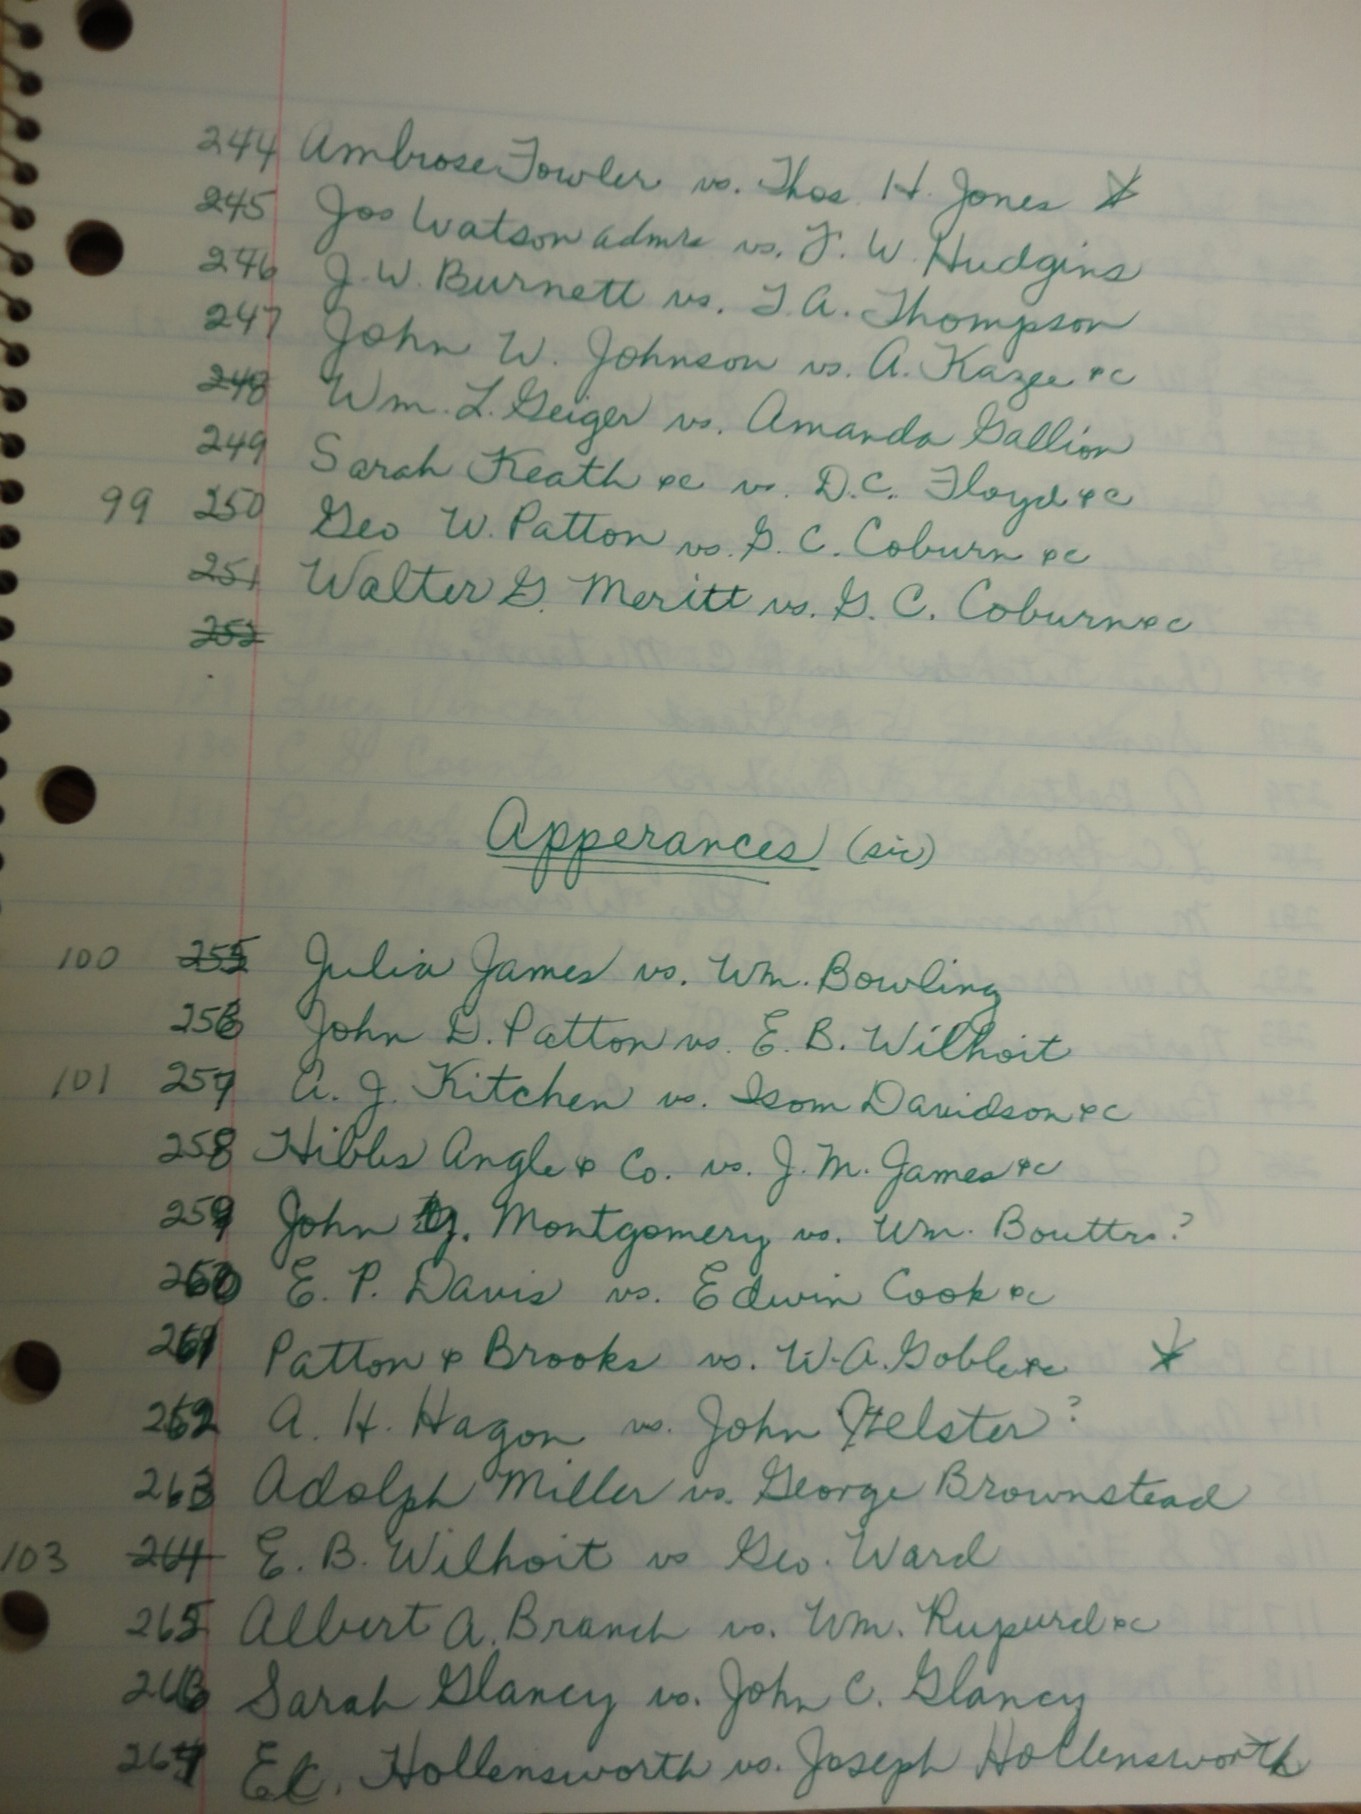 244 Ambrose Fowler vs. Thos. H. Jones
245 Jos Watson admrs vs. T. W. Hudgins
246 J. W. Burnett vs. T. A. Thompson
247 John W. Johnson vs. A. Kazee &c
248 Wm. L. Geiger vs. Amanda Gallion
249 Sarah Keath &c vs. D.C. Floyd &c
99 250 Geo W. Patton vs. G. C. Coburn &c
251 Walter G. Meritt vs. G. C. Coburn &c
252
Apperances (sic)
100 255 Julia James vs. Wm. Bowling
256 John D. Patton vs. E. B. Wilhoit
101 257 A. J. Kitchen vs. Isom Davidson &c
258 Hibbs Angle & Co. vs. J. M. James &c
259 John Montgomery vs. Wm. Bouttrs?
260 E. P. Davis vs. Edwin Cook &c
261 Patton & Brooks vs. W. A. Goble &c
262 A. H. Hagon vs. John Helster?
263 Adolph Miller vs. George Brownstead
103 264 E. B. Wilhoit vs Geo. Ward
265 Albert A. Branch vs. Wm. Rupurd &c
266 Sarah Glancy vs. John C. Glancy
267 E. C. Hollensworth vs. Joseph Hollensworth